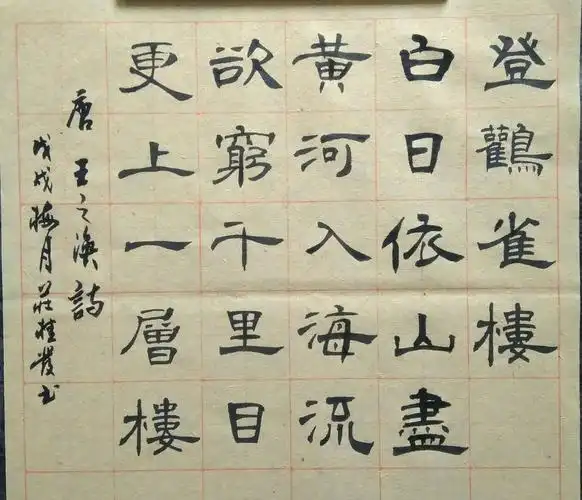 登鸛雀樓
白日依山盡
黄河入海流
欲窮千里目
更上一層樓
唐 王之渙詩
戊戌梅月莊桂發书